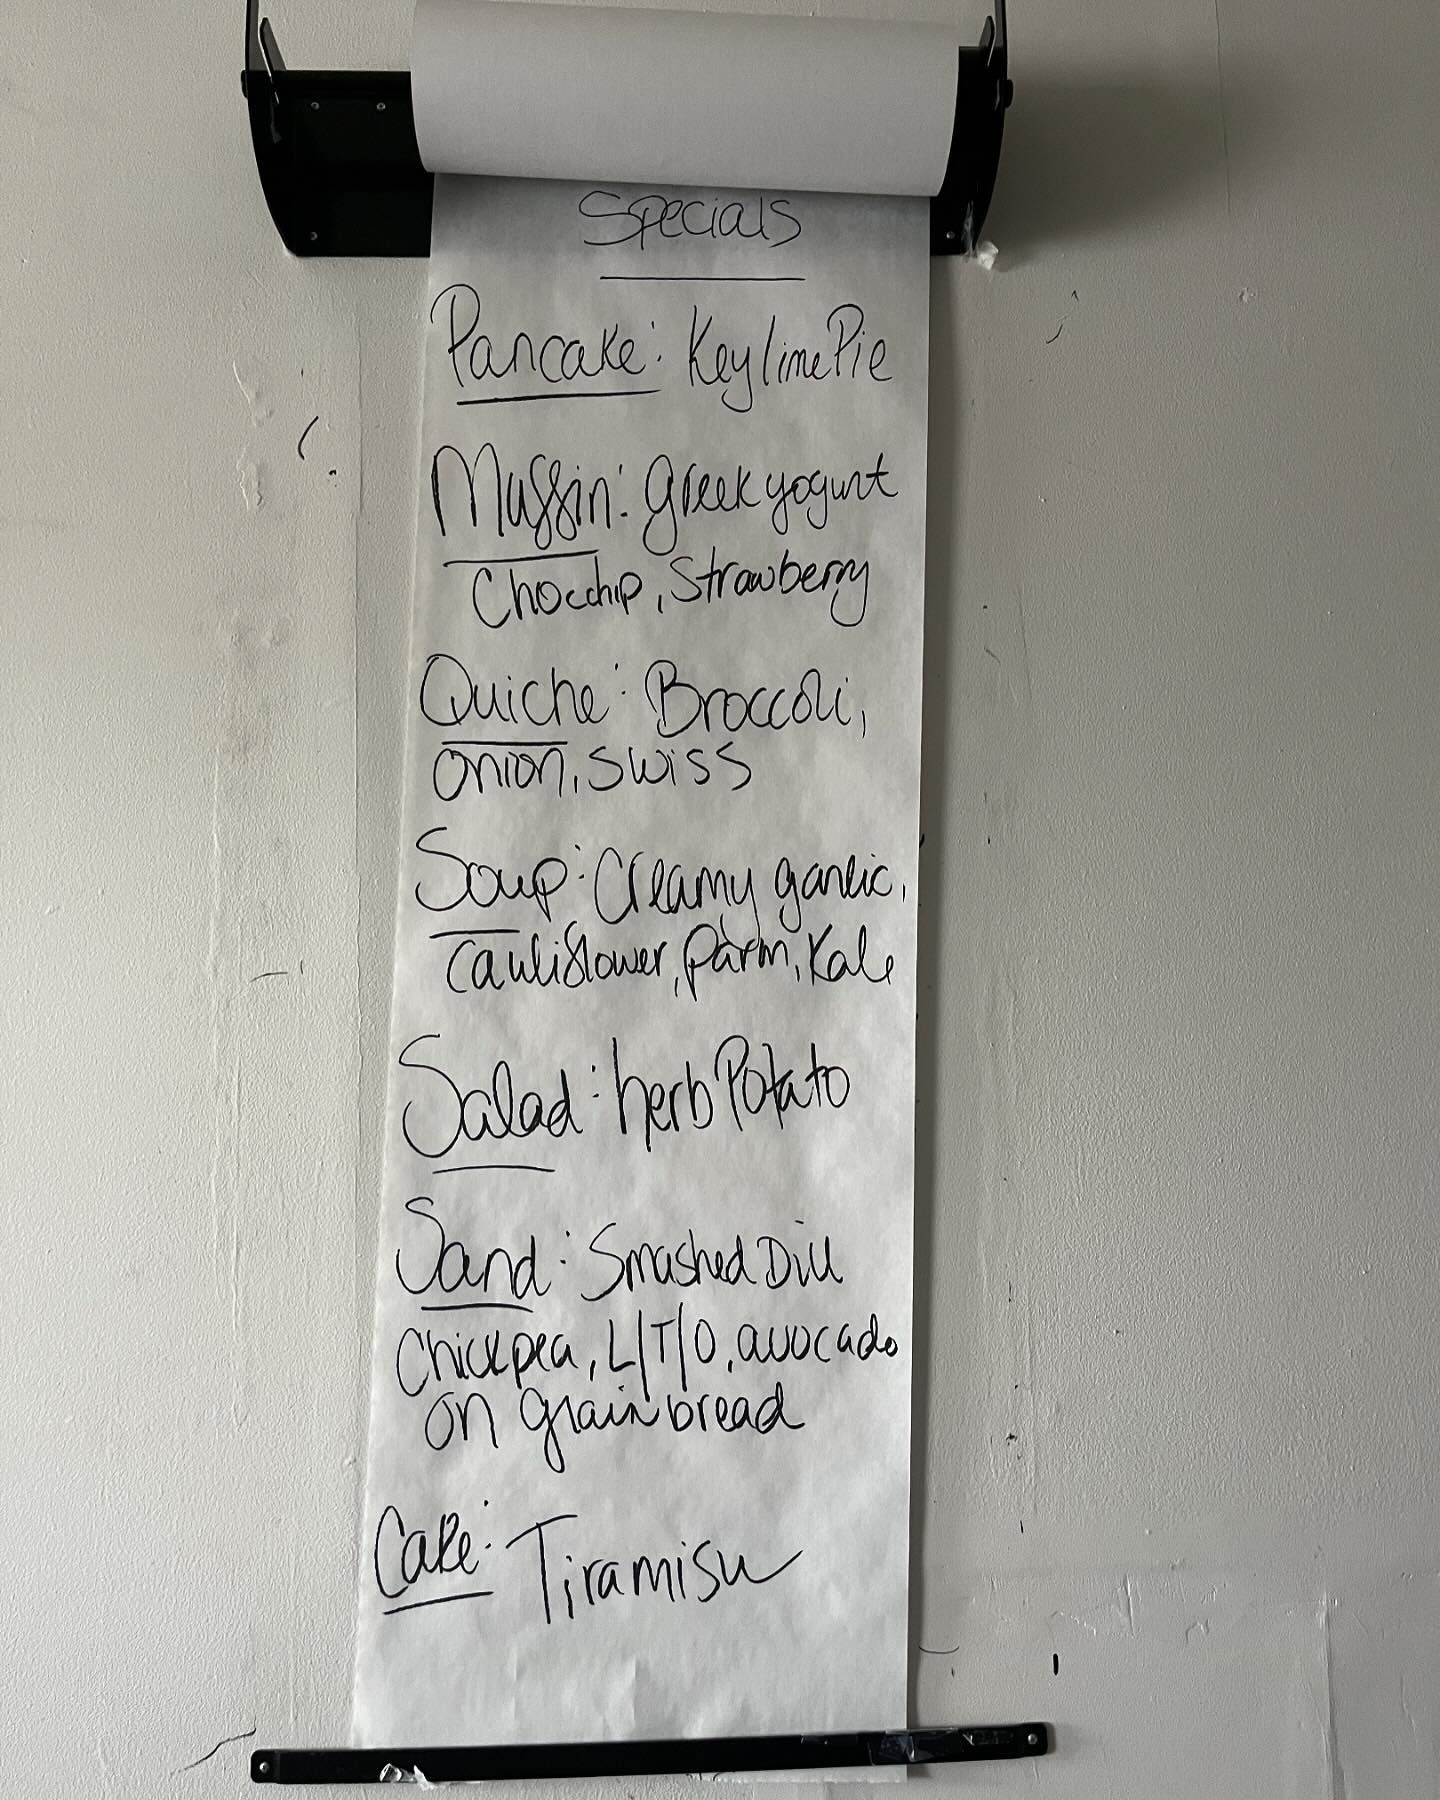 Specials
Pancake: Key lime Pie
Muffin: Greek yogurt
Chocchip, Strawberry
Quiche: Broccoli,
onion, swiss
Soup: Creamy garlic,
Cauliflower, parm, Kale
Salad: herb Potato
Sand: Smashed Dill
Chickpea, L/T/O, avocado
on grain bread
Cake: Tiramisu